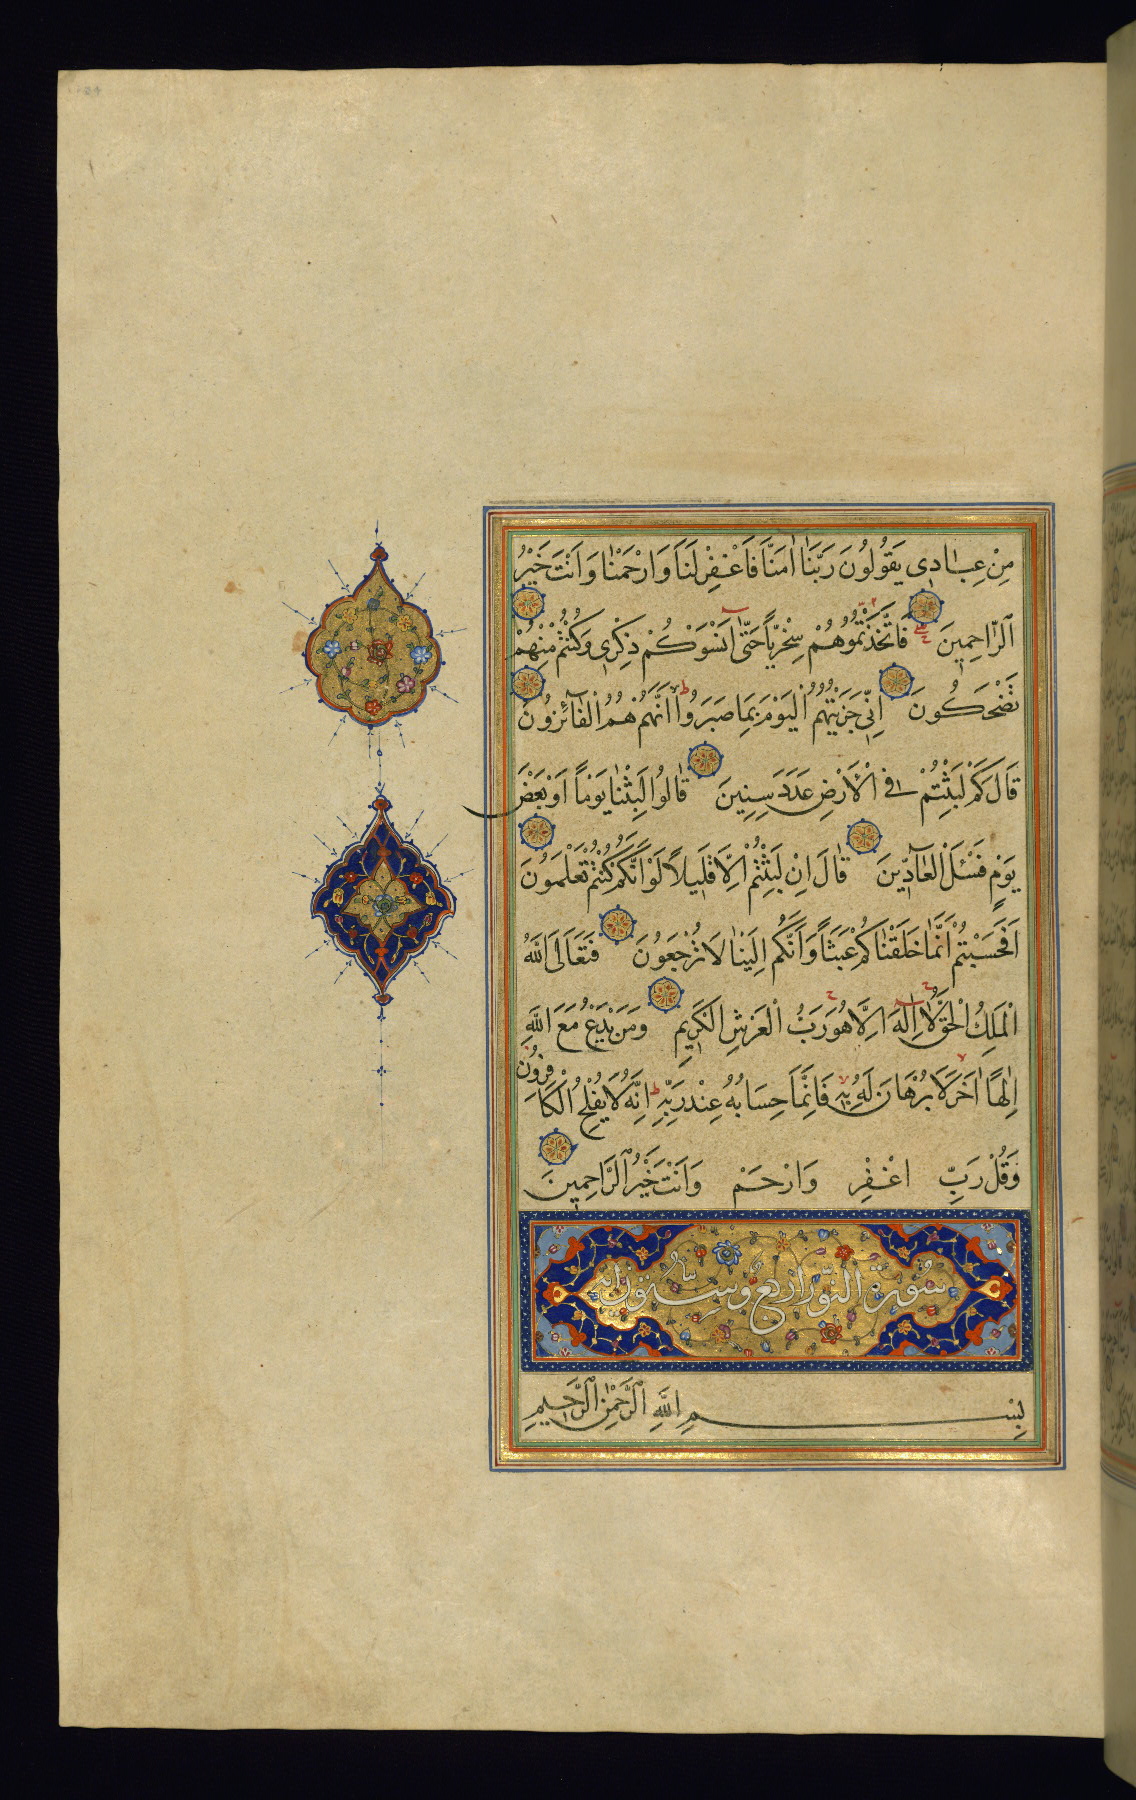 مِنْ عِبَادِى يَقُولُونَ رَبَّنَا اٰمَنَّا فَاغْفِرْ لَنَا وَارْحَمْنَا وَاَنْتَ خَيْرُ
الرَّاحِمِينَ فَاتَّخَذْتُمُوهُمْ سِخْرِيًّا حَتّٰى اَنْسَوْكُمْ ذِكْرِى وَكُنْتُمْ مِنْهُمْ
تَضْحَكُونَ اِنِّى جَزَيْتُهُمُ الْيَوْمَ بِمَا صَبَرُوا اَنَّهُمْ هُمُ الْفَائِزُونَ
قَالَ كَمْ لَبِثْتُمْ فِى الْاَرْضِ عَدَدَ سِنِينَ قَالُوا لَبِثْنَا يَوْمًا اَوْ بَعْضَ
يَوْمٍ فَسْئَلِ الْعَادِّينَ قَالَ اِنْ لَبِثْتُمْ اِلَّا قَلِيلًا لَوْ اَنَّكُمْ كُنْتُمْ تَعْلَمُونَ
اَفَحَسِبْتُمْ اَنَّمَا خَلَقْنَاكُمْ عَبَثًا وَاَنَّكُمْ اِلَيْنَا لَا تُرْجَعُونَ فَتَعَالَى اللّٰهُ
الْمَلِكُ الْحَقُّ لَا اِلٰهَ اِلَّا هُوَ رَبُّ الْعَرْشِ الْكَرِيمِ وَمَنْ يَدْعُ مَعَ اللّٰهِ
اِلٰهًا اٰخَرَ لَا بُرْهَانَ لَهُ بِهِ فَاِنَّمَا حِسَابُهُ عِنْدَ رَبِّهِ اِنَّهُ لَا يُفْلِحُ الْكَافِرُونَ
وَقُلْ رَبِّ اغْفِرْ وَارْحَمْ وَاَنْتَ خَيْرُ الرَّاحِمِينَ
سورة النور اربع وستون اية
بِسْمِ اللّٰهِ الرَّحْمٰنِ الرَّحِيمِ